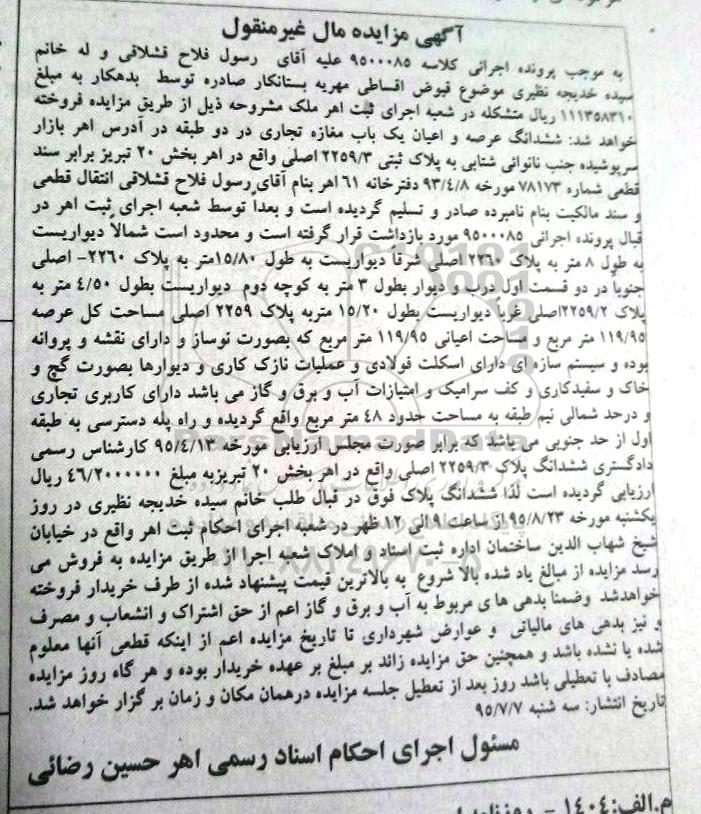 آگهی مزایده مال غیرمنقول
به موجب پرونده اجرائی کلاسه ۹۵۰۰۰۸۵ علیه آقای رسول فلاح قشلاقی و له خانم
سیده خدیجه نظیری موضوع قبوض اقساطی مهریه بستانکار صادره توسط بدهکار به مبلغ
۱۱۱۳۵۸۳۱۰ ریال متشکله در شعبه اجرای ثبت اهر ملک مشروحه ذیل از طریق مزایده فروخته
خواهد شد: ششدانگ عرصه و اعیان یک باب مغازه تجاری در دو طبقه در آدرس اهر بازار
سرپوشیده جنب نانوائی شتابی به پلاک ثبتی ۲۲۵۹/۳ اصلی واقع در اهر بخش ۲۰ تبریز برابر سند
قطعی شماره ۷۸۱۷۳ مورخه ۹۳/۴/۸ دفترخانه ۶۱ اهر بنام آقای رسول فلاح قشلاقی انتقال قطعی
و سند مالکیت بنام نامبرده صادر و تسلیم گردیده است و بعداً توسط شعبه اجرای ثبت اهر در
قبال پرونده اجرائی ۹۵۰۰۰۸۵ مورد بازداشت قرار گرفته است و محدود است شمالاً دیواریست
به طول ۸ متر به پلاک ۲۲۶۰ اصلی شرقاً دیواریست به طول ۱۵/۸۰متر به پلاک ۲۲۶۰- اصلی
جنوباً در دو قسمت اول درب و دیوار بطول ۳ متر به کوچه دوم دیواریست بطول ۴/۵۰ متر به
پلاک ۲۲۵۹/۲اصلی غرباً دیواریست بطول ۱۵/۲۰ متربه پلاک ۲۲۵۹ اصلی مساحت کل عرصه
۱۱۹/۹۵ متر مربع و مساحت اعیانی ۱۱۹/۹۵ متر مربع که بصورت نوساز و دارای نقشه و پروانه
بوده و سیستم سازه ای دارای اسکلت فولادی و عملیات نازک کاری و دیوارها بصورت گچ و
خاک و سفیدکاری و کف سرامیک و امتیازات آب و برق و گاز می باشد دارای کاربری تجاری
و درحد شمالی نیم طبقه به مساحت حدود ۴۸ متر مربع واقع گردیده و راه پله دسترسی به طبقه
اول از حد جنوبی می باشد که برابر صورت مجلس ارزیابی مورخه ۹۵/۴/۱۳ کارشناس رسمی
دادگستری ششدانگ پلاک ۲۲۵۹/۳ اصلی واقع در اهر بخش ۲۰ تبریزبه مبلغ ۴۶/۲۰۰۰۰۰۰ ریال
ارزیابی گردیده است لذا ششدانگ پلاک فوق در قبال طلب خانم سیده خدیجه نظیری در روز
یکشنبه مورخه ۹۵/۸/۲۳ از ساعت ۹ الی ۱۲ ظهر در شعبه اجرای احکام ثبت اهر واقع در خیابان
شیخ شهاب الدین ساختمان اداره ثبت اسناد و املاک شعبه اجرا از طریق مزایده به فروش می
رسد مزایده از مبالغ یاد شده بالا شروع به بالاترین قیمت پیشنهاد شده از طرف خریدار فروخته
خواهدشد وضمنا بدهی ها ی مربوط به آب و برق و گاز اعم از حق اشتراک و انشعاب و مصرف
و نیز بدهی های مالیاتی و عوارض شهرداری تا تاریخ مزایده اعم از اینکه قطعی آنها معلوم
شده یا نشده باشد و همچنین حق مزایده زائد بر مبلغ بر عهده خریدار بوده و هر گاه روز مزایده
مصادف با تعطیلی باشد روز بعد از تعطیل جلسه مزایده درهمان مکان و زمان بر گزار خواهد شد.
تاریخ انتشار: سه شنبه ۹۵/۷/۷
مسئول اجرای احکام اسناد رسمی اهر حسین رضائی
م.الف:۱۴۰۴ -
ParsNamadData
۰۲۱-۸۸۳۴۹۶۷۰-۵